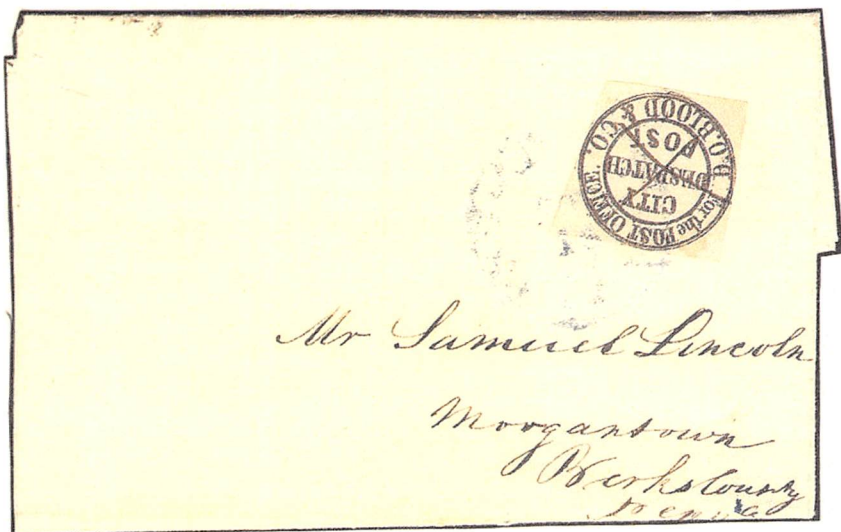 D.O. BLOOD & CO.
For the POST OFFICE.
CITY
DESPATCH
POST
Mr Samuel Lincoln
Morgantown
Berks County
Penna